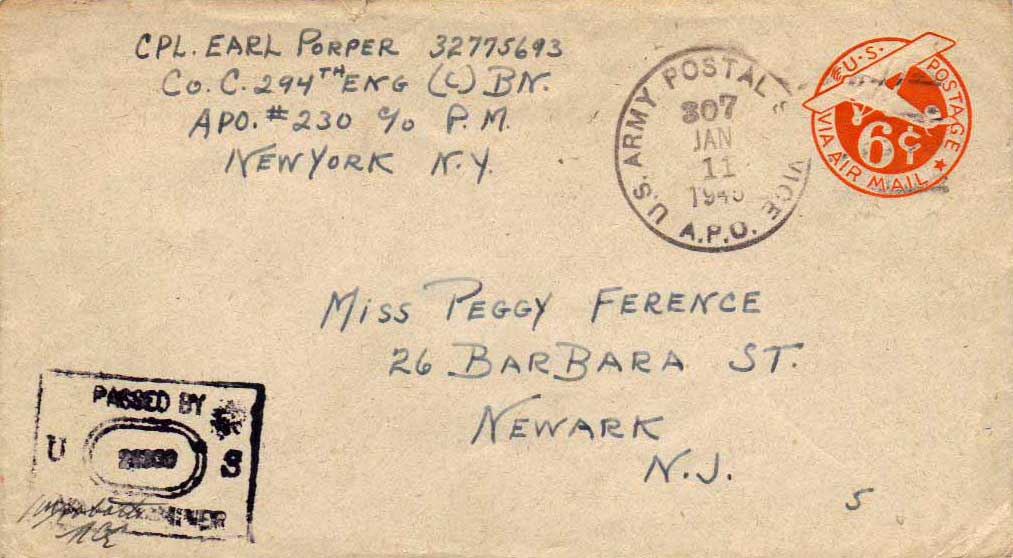 CPL. EARL PORPER 32775693
Co. C. 294TH ENG (C) BN.
APO. #230 c/o P.M.
NEW YORK N.Y.
U.S. ARMY POSTAL
A.P.O.
307
JAN
11
U.S. POSTAGE
6¢
VIA AIR MAIL
MISS PEGGY FERENCE
26 BARBARA ST.
NEWARK
N.J.
5
PASSED BY
U S